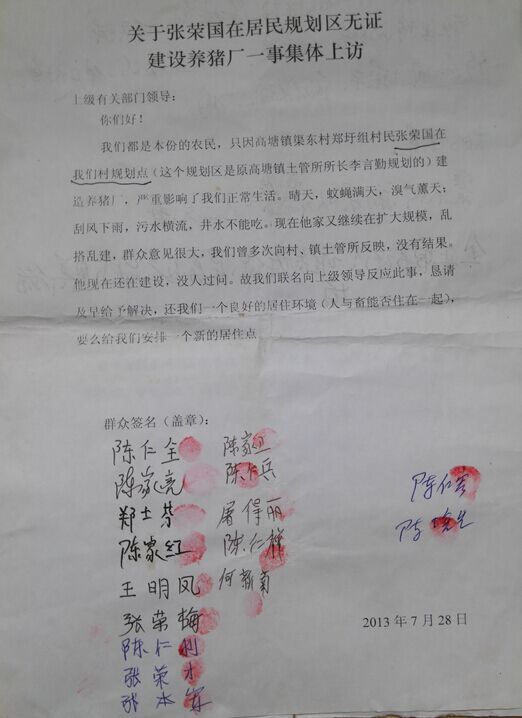 关于张荣国在居民规划区无证
建设养猪厂一事集体上访
上级有关部门领导：
你们好！
我们都是本份的农民，只因高塘镇渠东村郑圩组村民张荣国在
我们村规划点（这个规划区是原高塘镇土管所所长李言勤规划的）建
造养猪厂，严重影响了我们正常生活。晴天，蚊蝇满天，溴气薰天；
刮风下雨，污水横流，井水不能吃。现在他家又继续在扩大规模，乱
搭乱建，群众意见很大，我们曾多次向村、镇土管所反映，没有结果。
他现在还在建设，没人过问。故我们联名向上级领导反应此事，恳请
及早给予解决，还我们一个良好的居住环境（人与畜能否住在一起），
要么给我们安排一个新的居住点
群众签名（盖章）：
陈仁全
陈家亮
郑士芬
陈家红
王明凤
张荣梅
陈仁利
张荣才
张本军
陈家卫
陈仁兵
屠得丽
陈仁
何新菊
陈仁
陈
2013 年 7 月 28 日